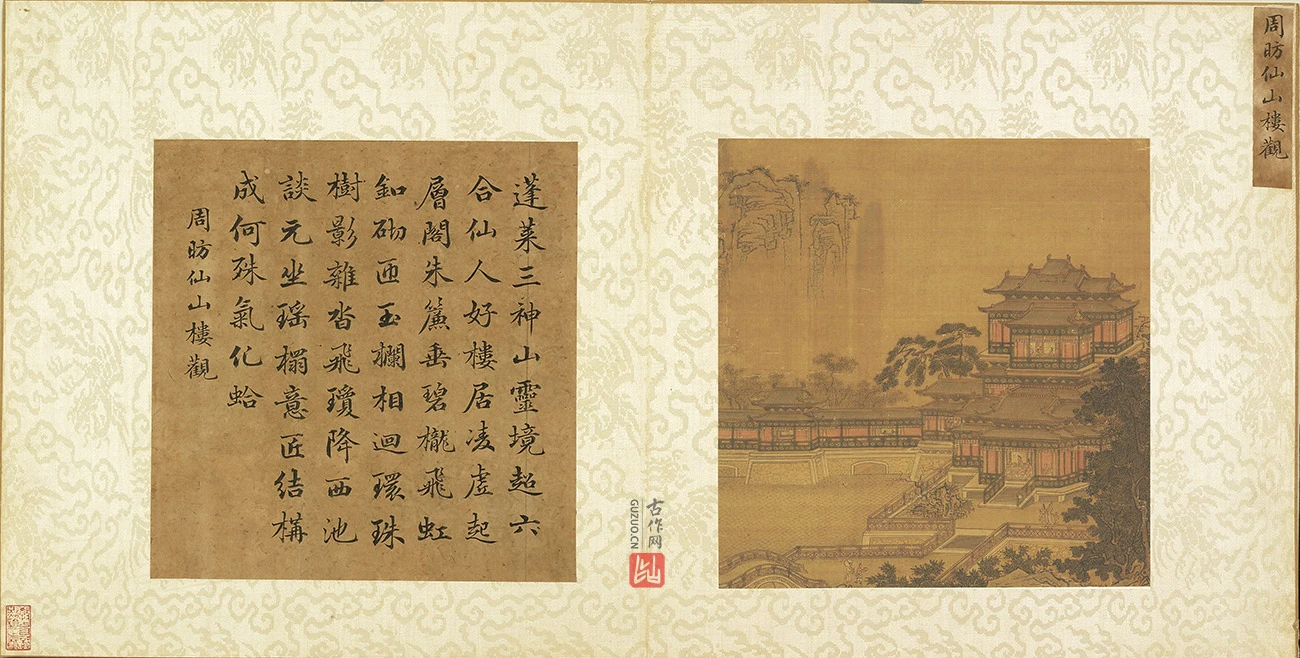 周昉仙山樓觀
蓬萊三神山靈境超六
合仙人好樓居凌虛起
層閣朱簾垂碧櫳飛虹
釦砌匝玉欄相迴環珠
樹影雜沓飛瓊降西池
談元坐瑤榻意匠結構
成何殊氣化蛤
周昉仙山樓觀
古作网
GUZUO.CN